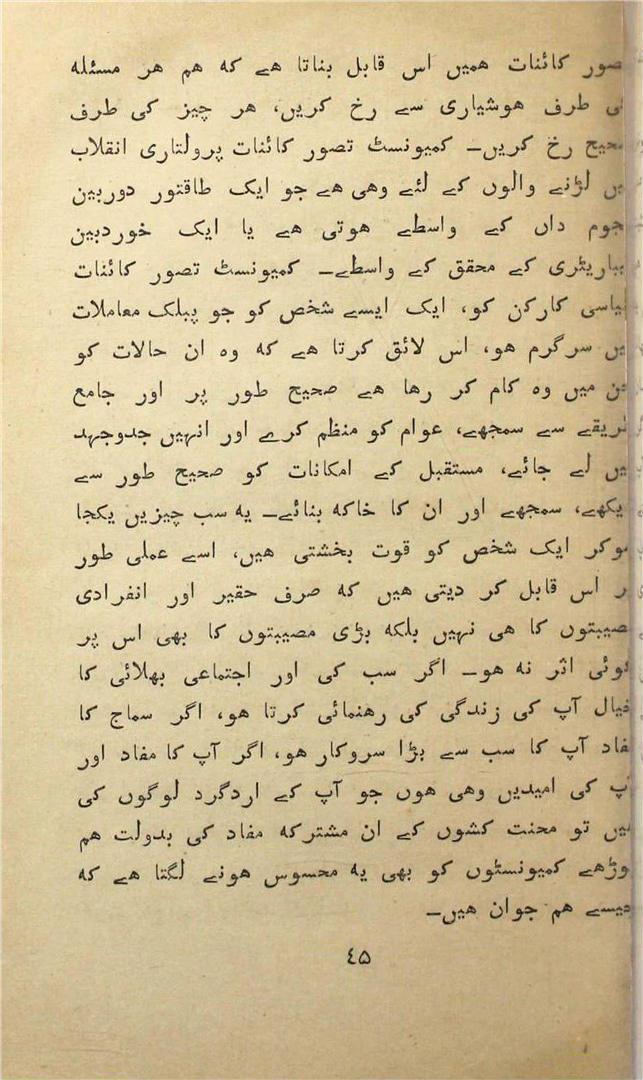 تصور کائنات ہمیں اس قابل بناتا ہے کہ ہم ہر مسئلہ
کی طرف ہوشیاری سے رخ کریں، ہر چیز کی طرف
صحیح رخ کریں۔ کمیونسٹ تصور کائنات پرولتاری انقلاب
میں لڑنے والوں کے لئے وہی ہے جو ایک طاقتور دوربین
نجوم داں کے واسطے ہوتی ہے یا ایک خوردبین
لیباریٹری کے محقق کے واسطے۔ کمیونسٹ تصور کائنات
سیاسی کارکن کو، ایک ایسے شخص کو جو پبلک معاملات
میں سرگرم ہو، اس لائق کرتا ہے کہ وہ ان حالات کو
جن میں وہ کام کر رہا ہے صحیح طور پر اور جامع
طریقے سے سمجھے، عوام کو منظم کرے اور انہیں جدوجہد
میں لے جائے، مستقبل کے امکانات کو صحیح طور سے
دیکھے، سمجھے اور ان کا خاکہ بنائے۔ یہ سب چیزیں یکجا
ہوکر ایک شخص کو قوت بخشتی ہیں، اسے عملی طور
پر اس قابل کر دیتی ہیں کہ صرف حقیر اور انفرادی
مصیبتوں کا ہی نہیں بلکہ بڑی مصیبتوں کا بھی اس پر
کوئی اثر نہ ہو۔ اگر سب کی اور اجتماعی بھلائی کا
خیال آپ کی زندگی کی رہنمائی کرتا ہو، اگر سماج کا
مفاد آپ کا سب سے بڑا سروکار ہو، اگر آپ کا مفاد اور
آپ کی امیدیں وہی ہوں جو آپ کے اردگرد لوگوں کی
ہیں تو محنت کشوں کے ان مشترکہ مفاد کی بدولت ہم
بوڑھے کمیونسٹوں کو بھی یہ محسوس ہونے لگتا ہے کہ
جیسے ہم جوان ہیں۔
٤٥